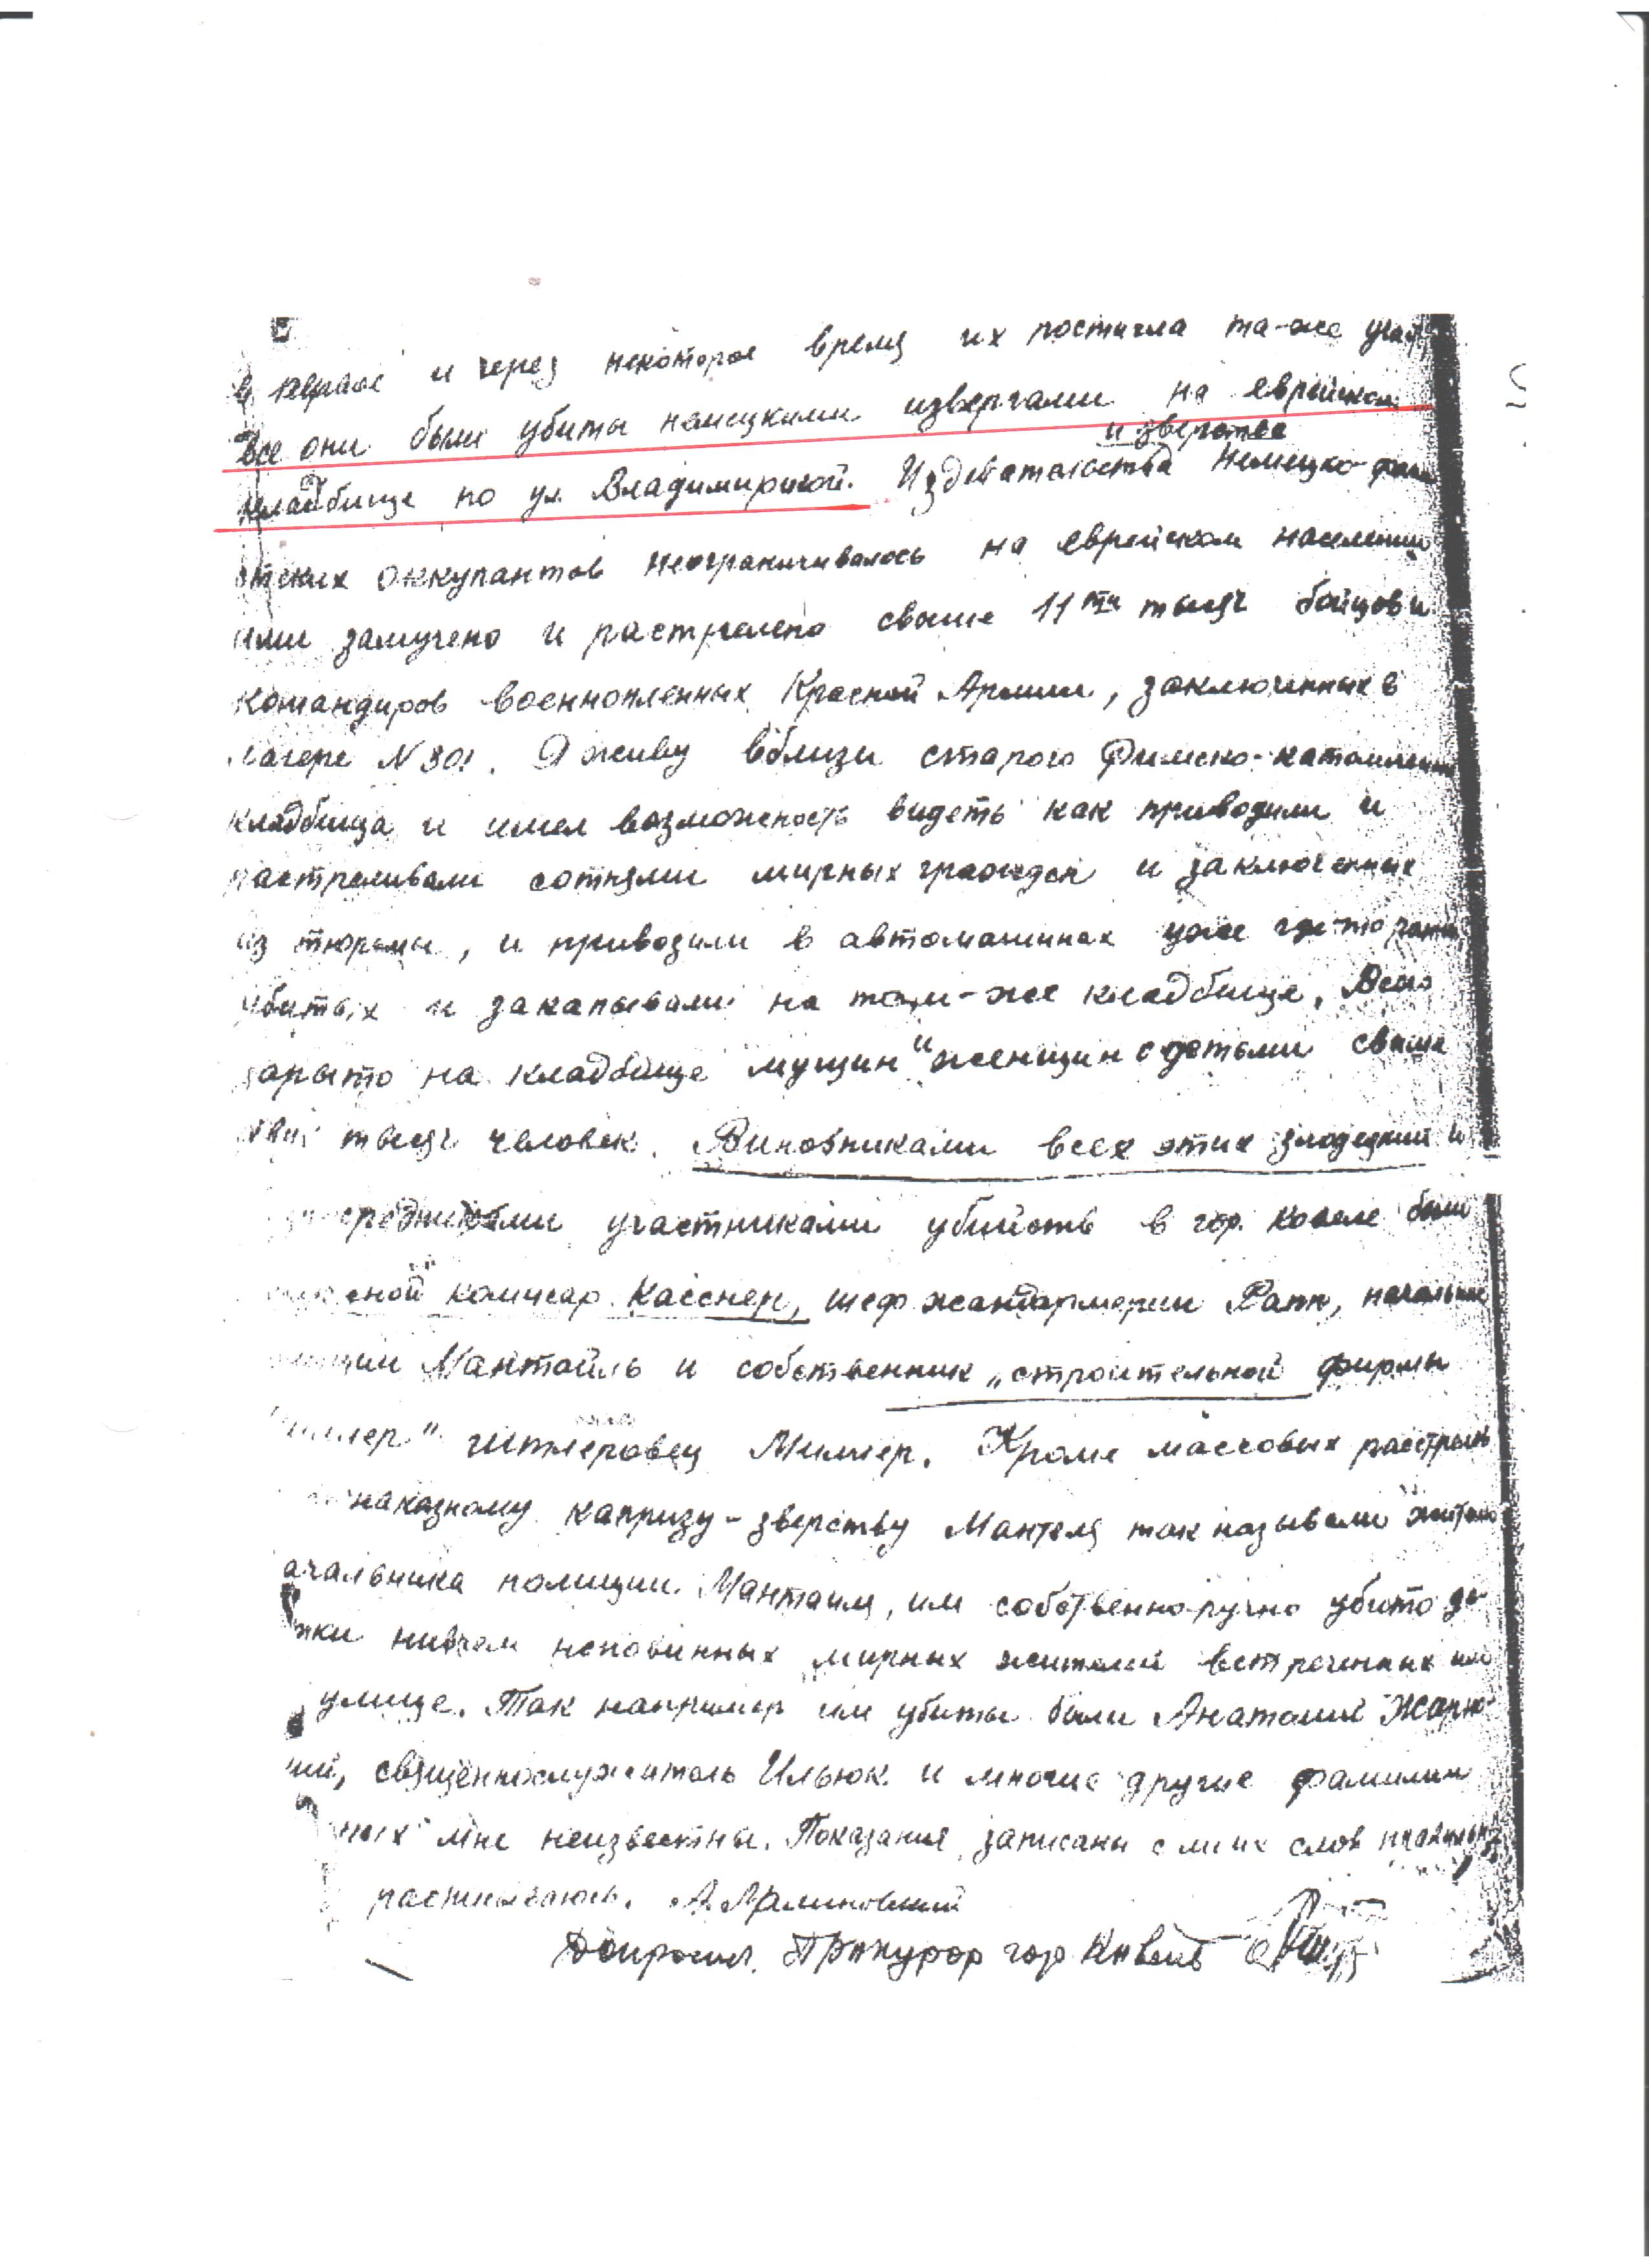 и через некоторое время их постигла та-же участь
Все они были убиты немецкими извергами на еврейском
и зверства
кладбище по ул. Владимирской. Издевательства немецко-фаши
стских оккупантов неограничивалось на еврейском населении
ими замучено и растрелено свыше 11ти тысяч бойцов и
командиров военнопленных Красной Армии, заключенных в
лагере N 301. Я живу вблизи старого Римско-католического
кладбища и имел возможность видеть как приводили и
растреливали сотнями мирных граждан и заключенных
из тюремы, и привозили в автомашинах уже где-то ранее
убитых и закапывали на том-же кладбище. Всего
зарыто на кладбище мущин и женщин с детьми свыше
тысяч человек. Виновниками всех этих злодеяний и
участниками убийств в гор. Ковеле были
комисар Касснер, шеф жандармерии Рапп, начальник
полиции Мантойль и собственник „строительной фирмы
гитлеровец Миллер. Кроме массовых расстрелов
капризу-зверству Мантеля так называли жители
начальника полиции Мантаиля, им собственно-ручно убито де-
сятки нивчем неповинных мирных жителей встреченных им
улице. Так например им убиты были Анатолий
ий, священнослужитель Ильюк и многие другие фамилии
мне неизвестны. Показания записаны с моих слов правильно
расписаюсь. А. Малиновский
Допросил. Прокурор гор Ковель